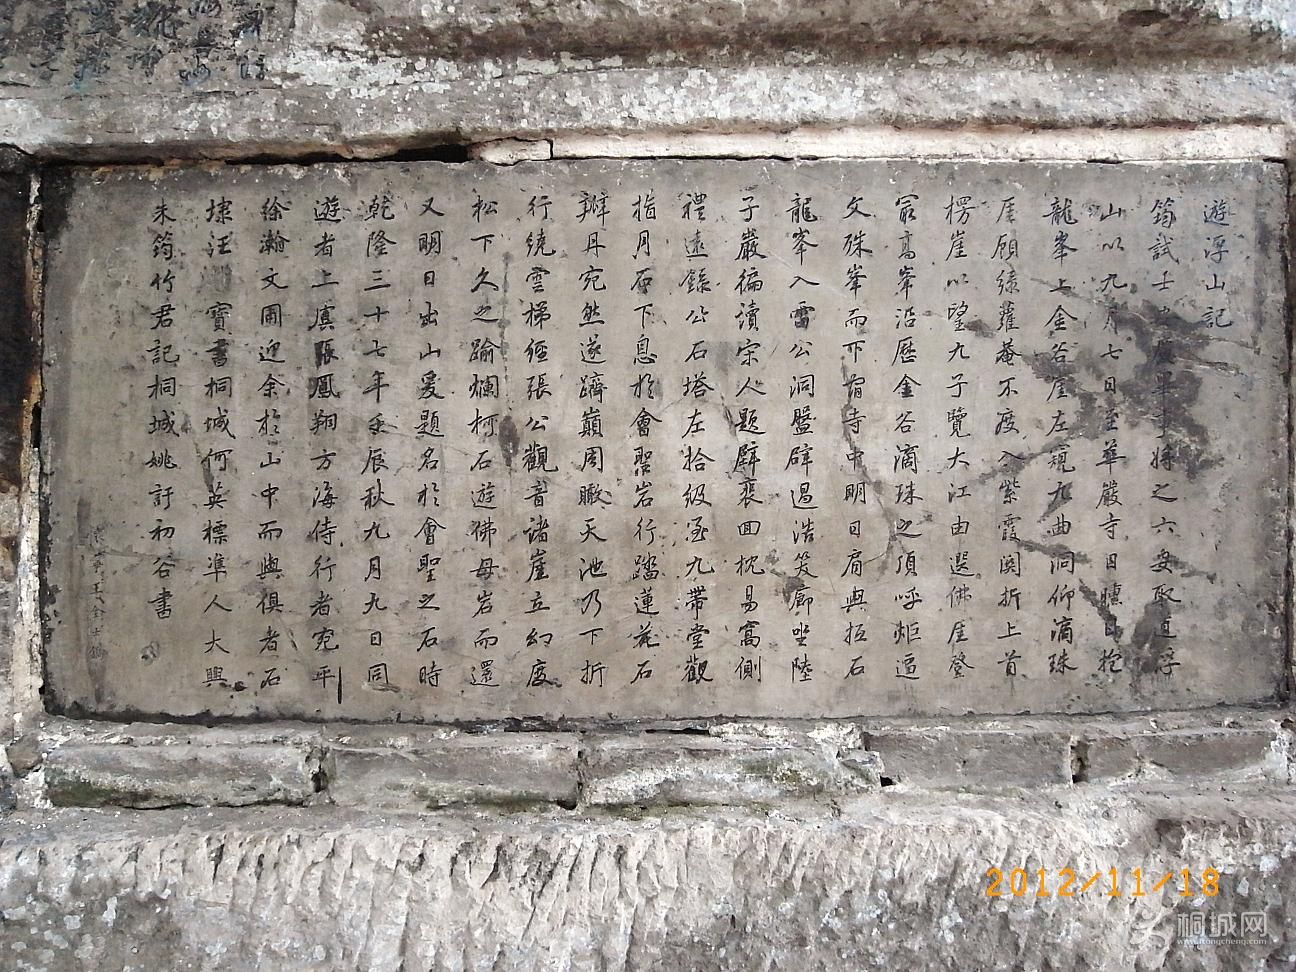 遊浮山記
筠試士安慶畢事將之六安取道浮
山以九月七日至華嚴寺日曛日抱
龍峯上金谷崖左窺九曲洞仰滴珠
崖顧綠蘿菴不度入紫霞関折上首
楞崖以望九子覽大江由選佛崖登
冣高峯沿歷金谷滴珠之頂呼炬逼
文殊峯而下宿寺中明日肩輿抵石
龍峯入雷公洞盤辟過浩笑廊坐陸
子巖徧讀宋人題辟裵回枕易窩側
禮遠錄公石塔左拾級至九帶堂觀
指月石下息於會聖岩行踏蓮花石
辮丹宛然遂躋巔周瞰天池乃下折
行繞雲梯經張公觀音諸崖立幻度
松下久之踰爛柯石遊佛母岩而還
又明日出山爰題名於會聖之石時
乾隆三十七年壬辰秋九月九日同
遊者上虞張鳳翔方海侍行者宛平
徐瀚文圃迎余於山中而與俱者石
埭汪寶書桐城何英標準人大興
朱筠竹君記桐城姚訏初谷書
2012/11/18
桐城网
www.itongcheng.com